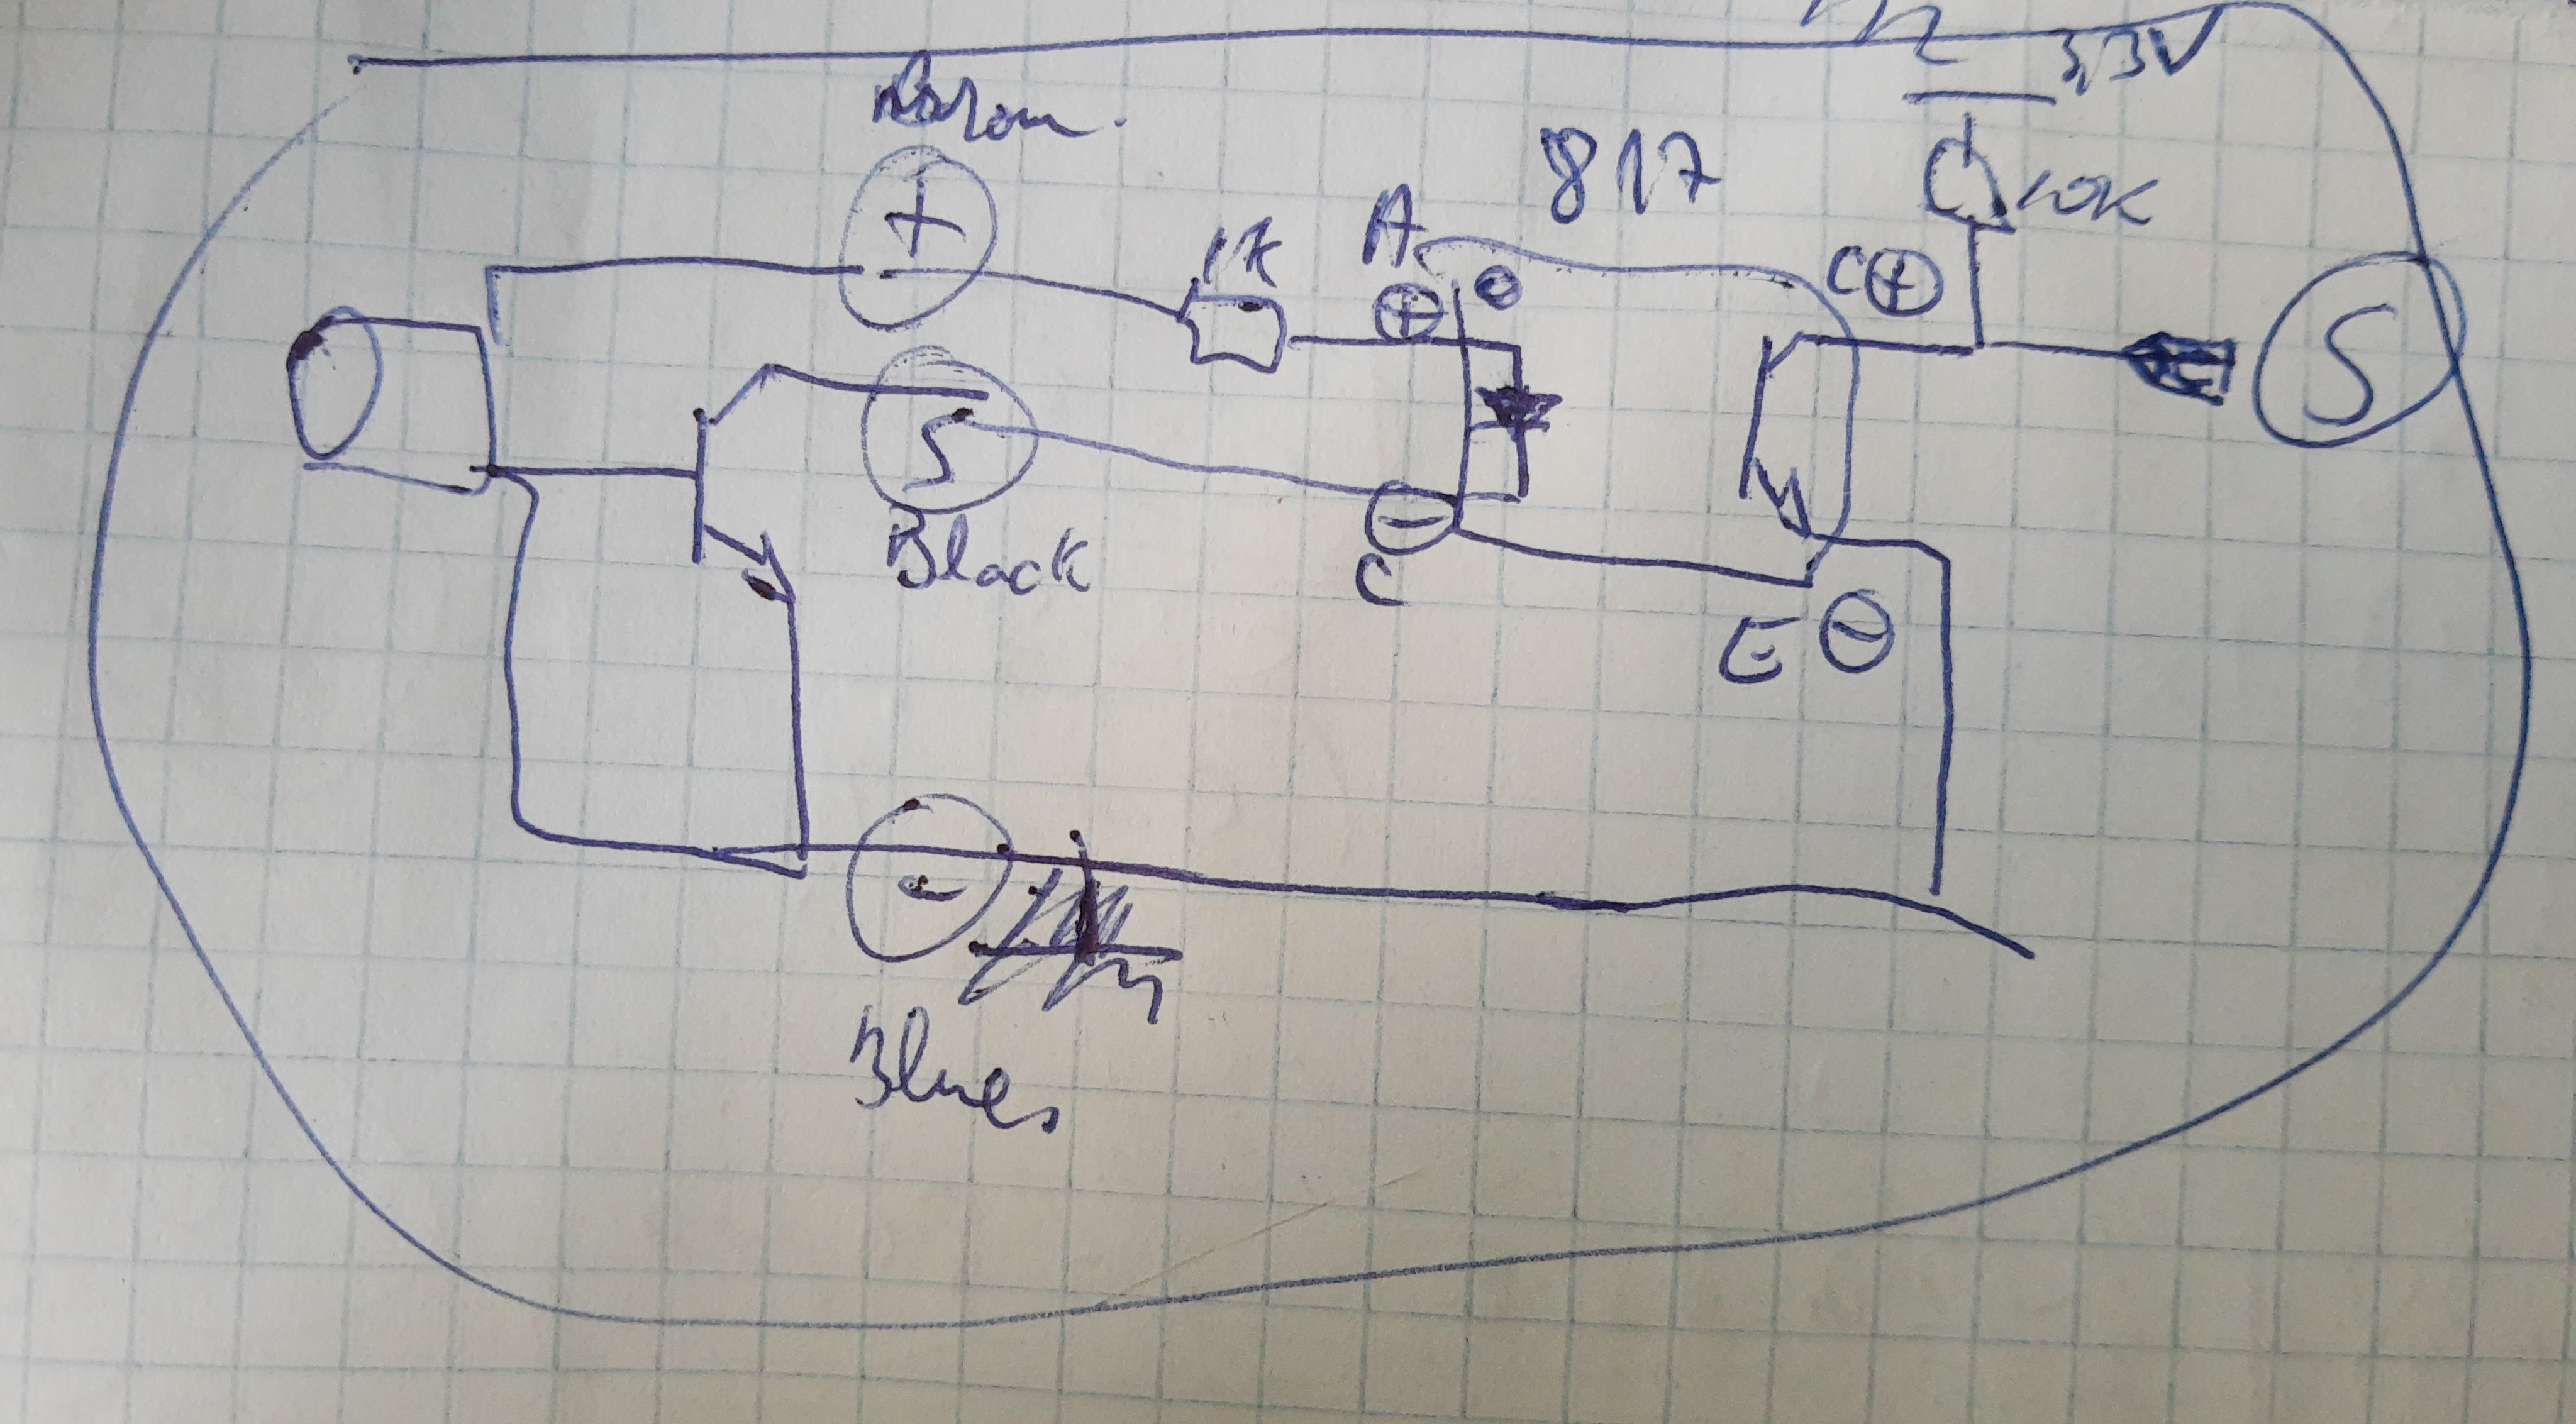 3,3V
Brown.
817
+
1K
A
10K
C +
+
S
S
Black
-
C
E -
-
Blues